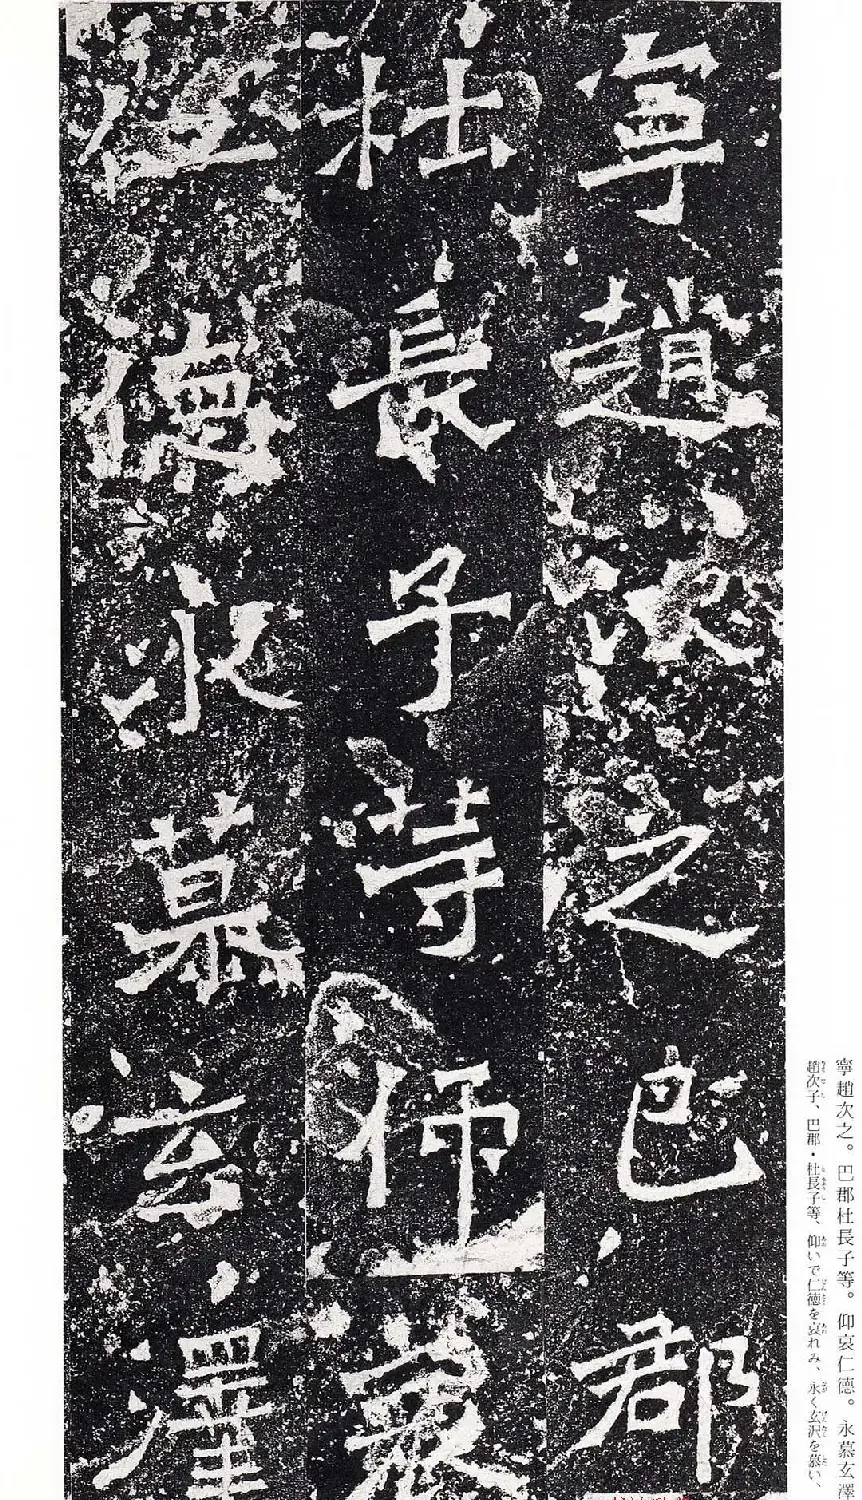 寧趙次之。巴郡杜長子等。仰哀仁德。永慕玄澤
趙次子、巴郡・杜長子等、仰いで仁德を哀れみ、永く玄沢を慕い、
寧趙次之巴郡
杜長子等仰哀
仁德永慕玄澤